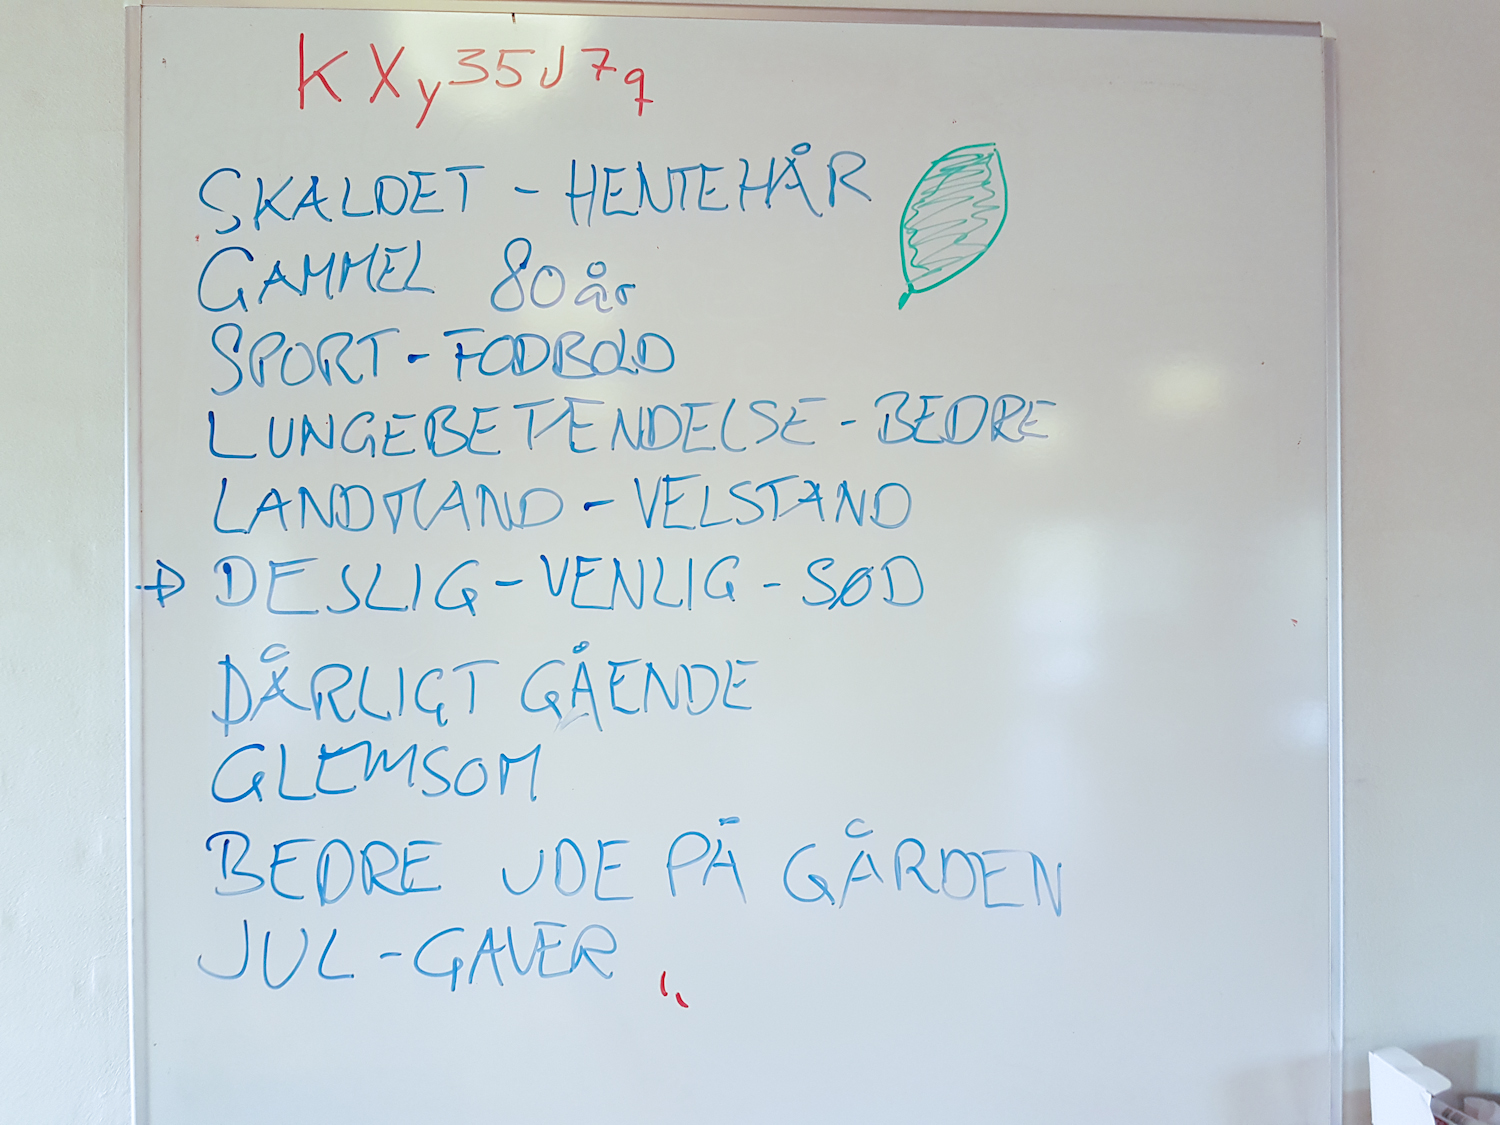 KXy35J7q
SKALDET - HENTEHÅR
GAMMEL 80 år
SPORT - FODBOLD
LUNGEBETENDELSE - BEDRE
LANDMAND - VELSTAND
→ DESLIG - VENLIG - SØD
DÅRLIGT GÅENDE
GLEMSOM
BEDRE UDE PÅ GÅRDEN
JUL - GAVER